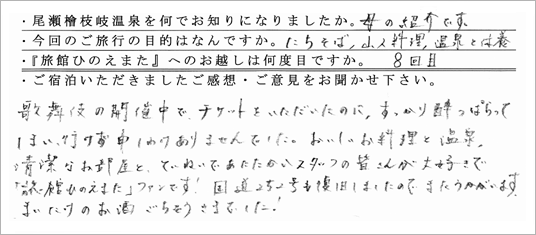 ・尾瀬檜枝岐温泉を何でお知りになりましたか。母の紹介です
・今回のご旅行の目的はなんですか。たちそば、山人料理、温泉と休養
・『旅館ひのえまた』へのお越しは何度目ですか。 8回目
・ご宿泊いただきましたご感想・ご意見をお聞かせ下さい。
歌舞伎の開催中で、チケットをいただいたのに、すっかり酔っぱらって
しまい、行けず申しわけありませんでした。おいしいお料理と温泉、
清潔なお部屋と、ていねいであたたかいスタッフの皆さんが大好きで
「旅館ひのえまた」ファンです！国道252号も復旧しましたのでまたうかがいます。
まいたけのお酒ごちそうさまでした！